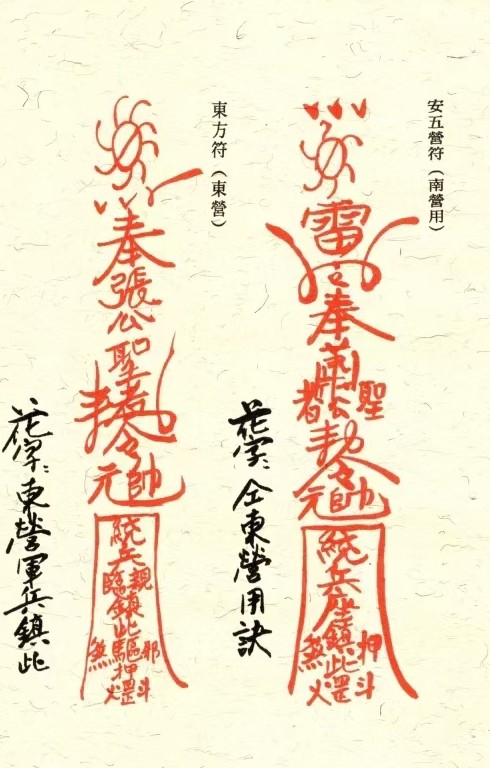 安五營符（南營用）
雷令奉蕭公聖者敕令元帥
統兵座鎮此押煞罡火斗
花字：仝東營用訣
東方符（東營）
奉張公聖者敕令元帥
統兵親臨鎮此驅邪押煞罡火斗
花字：東營軍兵鎮此